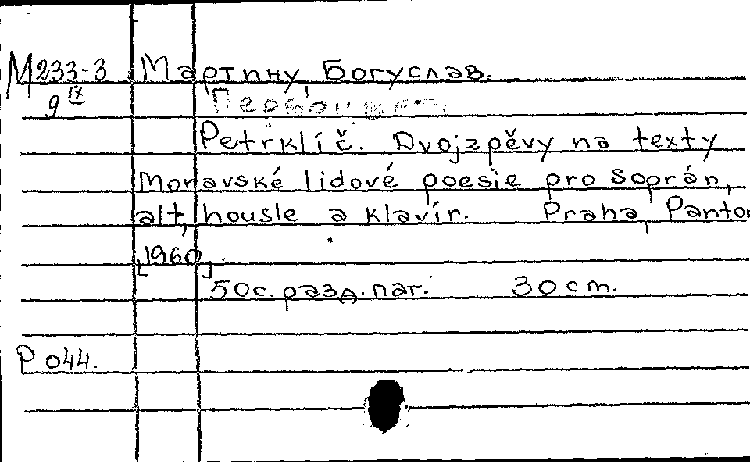 М233-3 Мартину, Богуслав.
9 IX
Petrklíč. Dvojzpěvy na texty
Moravské lidové poesie pro soprán,
alt, housle a klavír. Praha, Panto
[1960]
50 с. разд. паг. 30 cm.
Р 044.